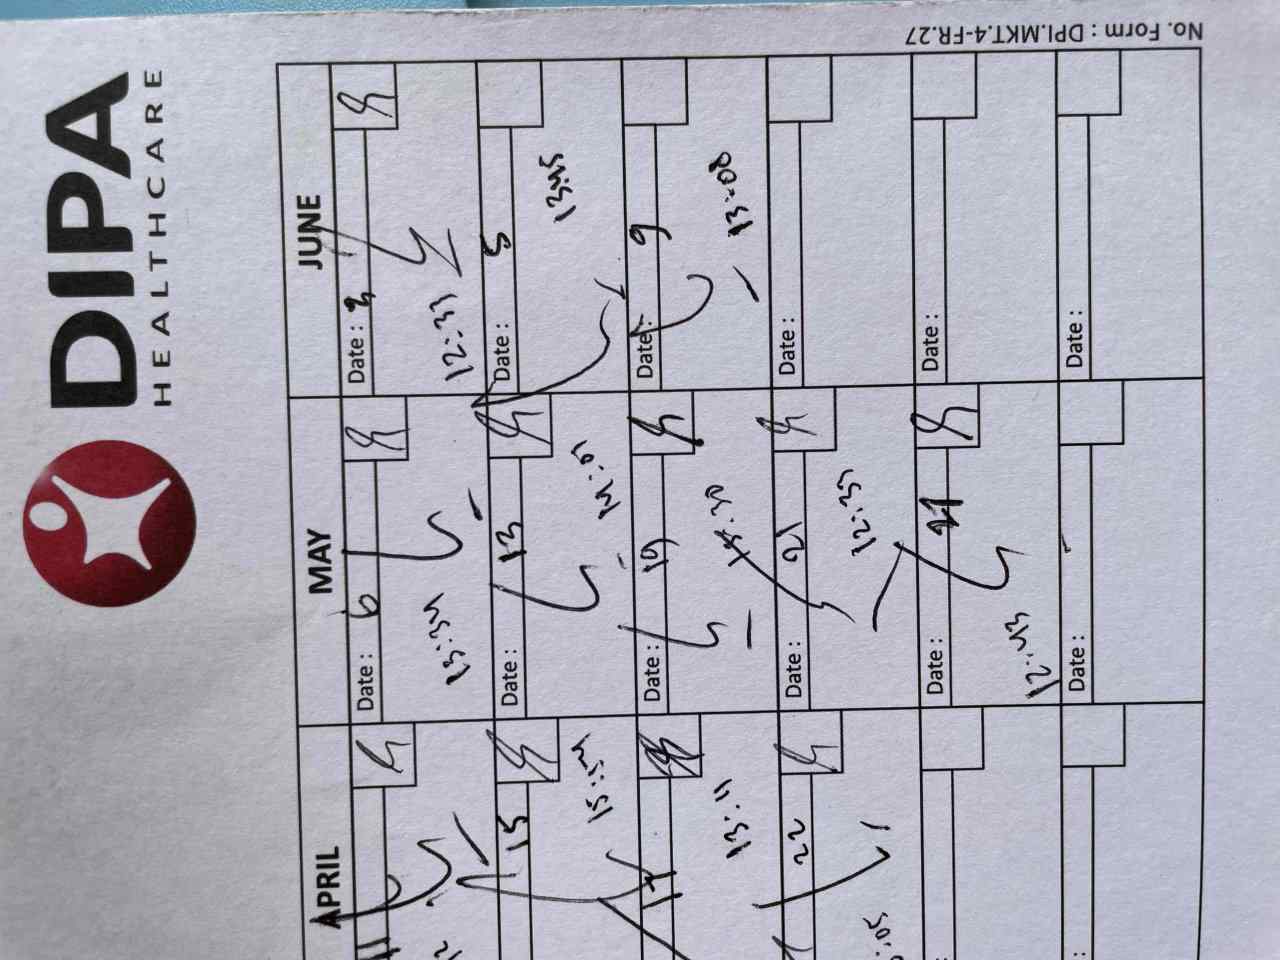 DIPA
HEALTHCARE
No. Form : DPI.MKT.4-FR.27
APRIL
MAY
JUNE
11
Date : 6
13:34
Date : 3
12:33
15
15:54
Date : 13
14:01
Date : 5
13:45
17
13:11
Date : 19
Date : 9
13:08
22
:05
Date : 21
12:35
Date :
Date :
12:43
Date :
:
Date :
Date :